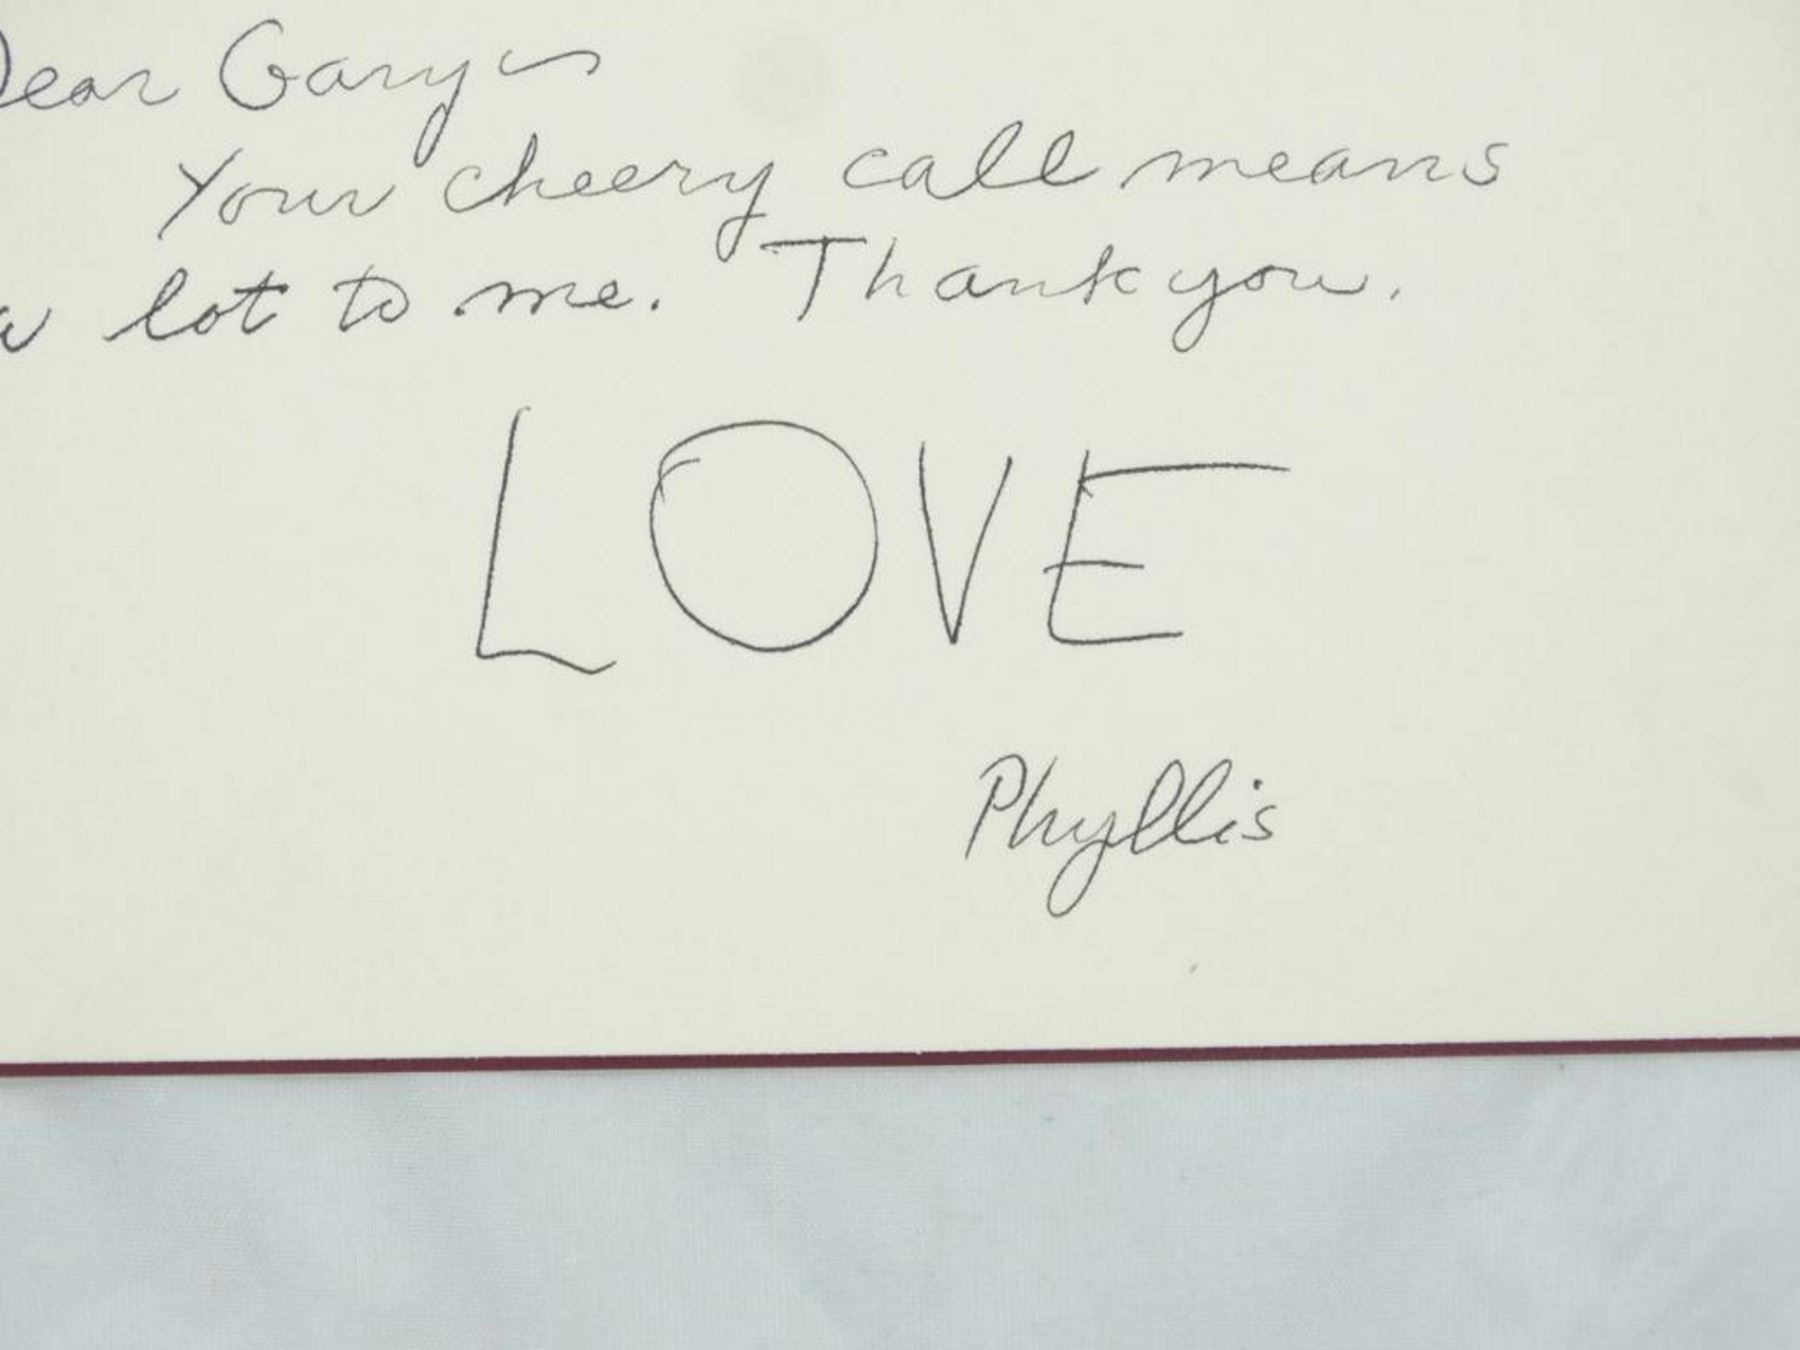 Dear Gary ~
Your cheery call means
a lot to me. Thank you.
LOVE
Phyllis